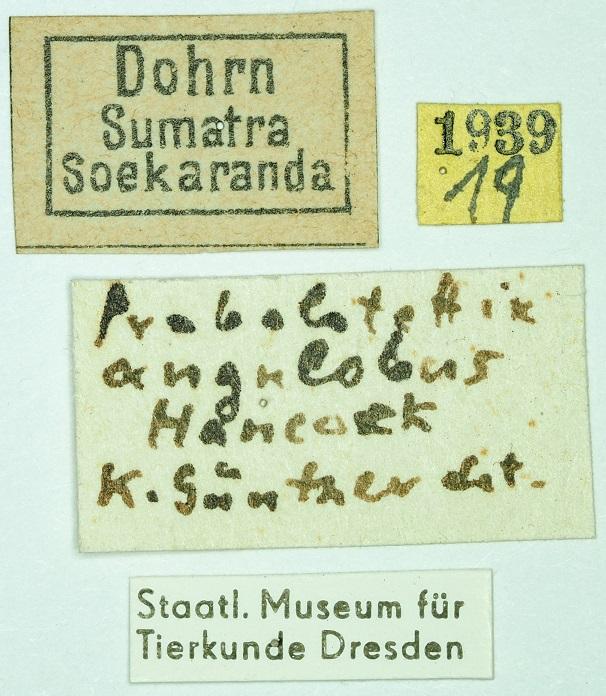 Dohrn
Sumatra
Soekaranda
1939
19
angulobus
Hancock
K. Günther det.
Staatl. Museum für
Tierkunde Dresden